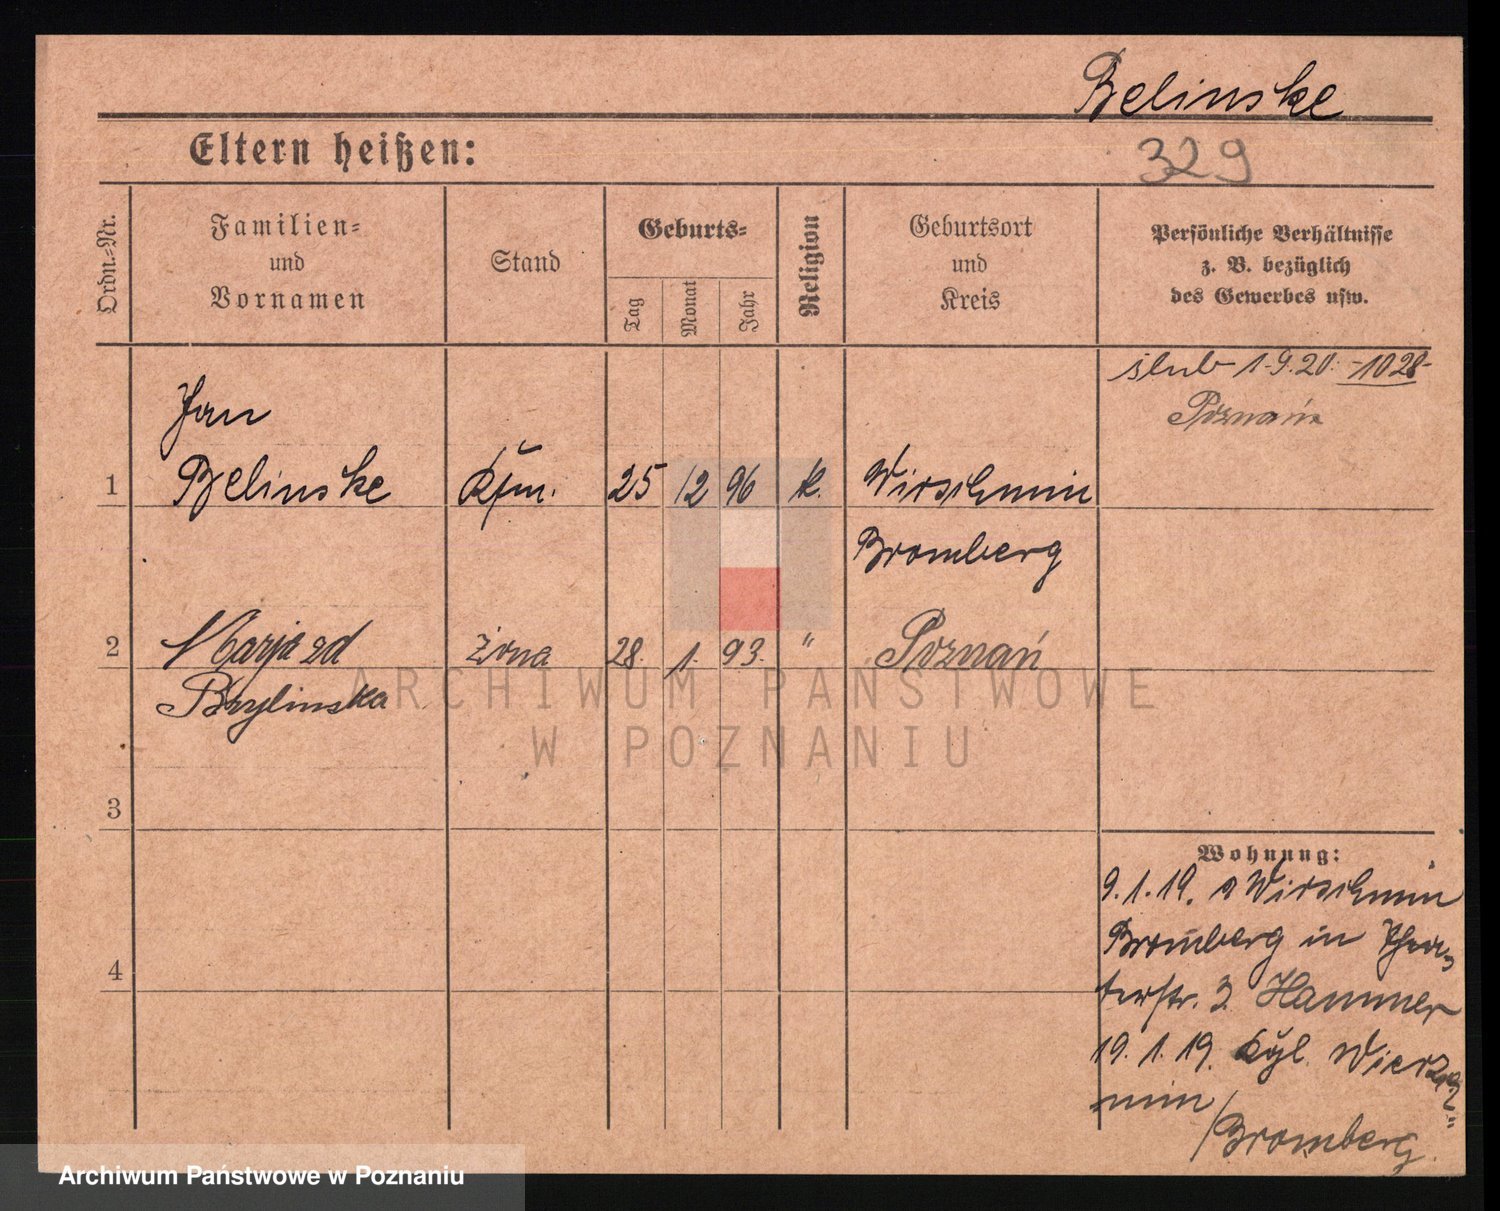 Belinske
Eltern heißen:
329
Ordn.-Nr.
Familien-
und
Vornamen
Stand
Geburts-
Tag
Monat
Jahr
Religion
Geburtsort
und
Kreis
Persönliche Verhältnisse
z. B. bezüglich
des Gewerbes usw.
ślub 1.9.20. -1028-
Poznań
Jan
1 Belinske Kfm. 25 12 96 k. Wirschmin
Bromberg
2 Marja zd Żona 28. 1. 93. " Poznań
Brylinska
ARCHIWUM PAŃSTWOWE
W POZNANIU
3
Wohnung:
9.1.19. a Wirschmin
Bromberg in Thea-
terstr. 3 Hammer
4
19.1.19. Wierz
min
/Bromberg.
Archiwum Państwowe w Poznaniu